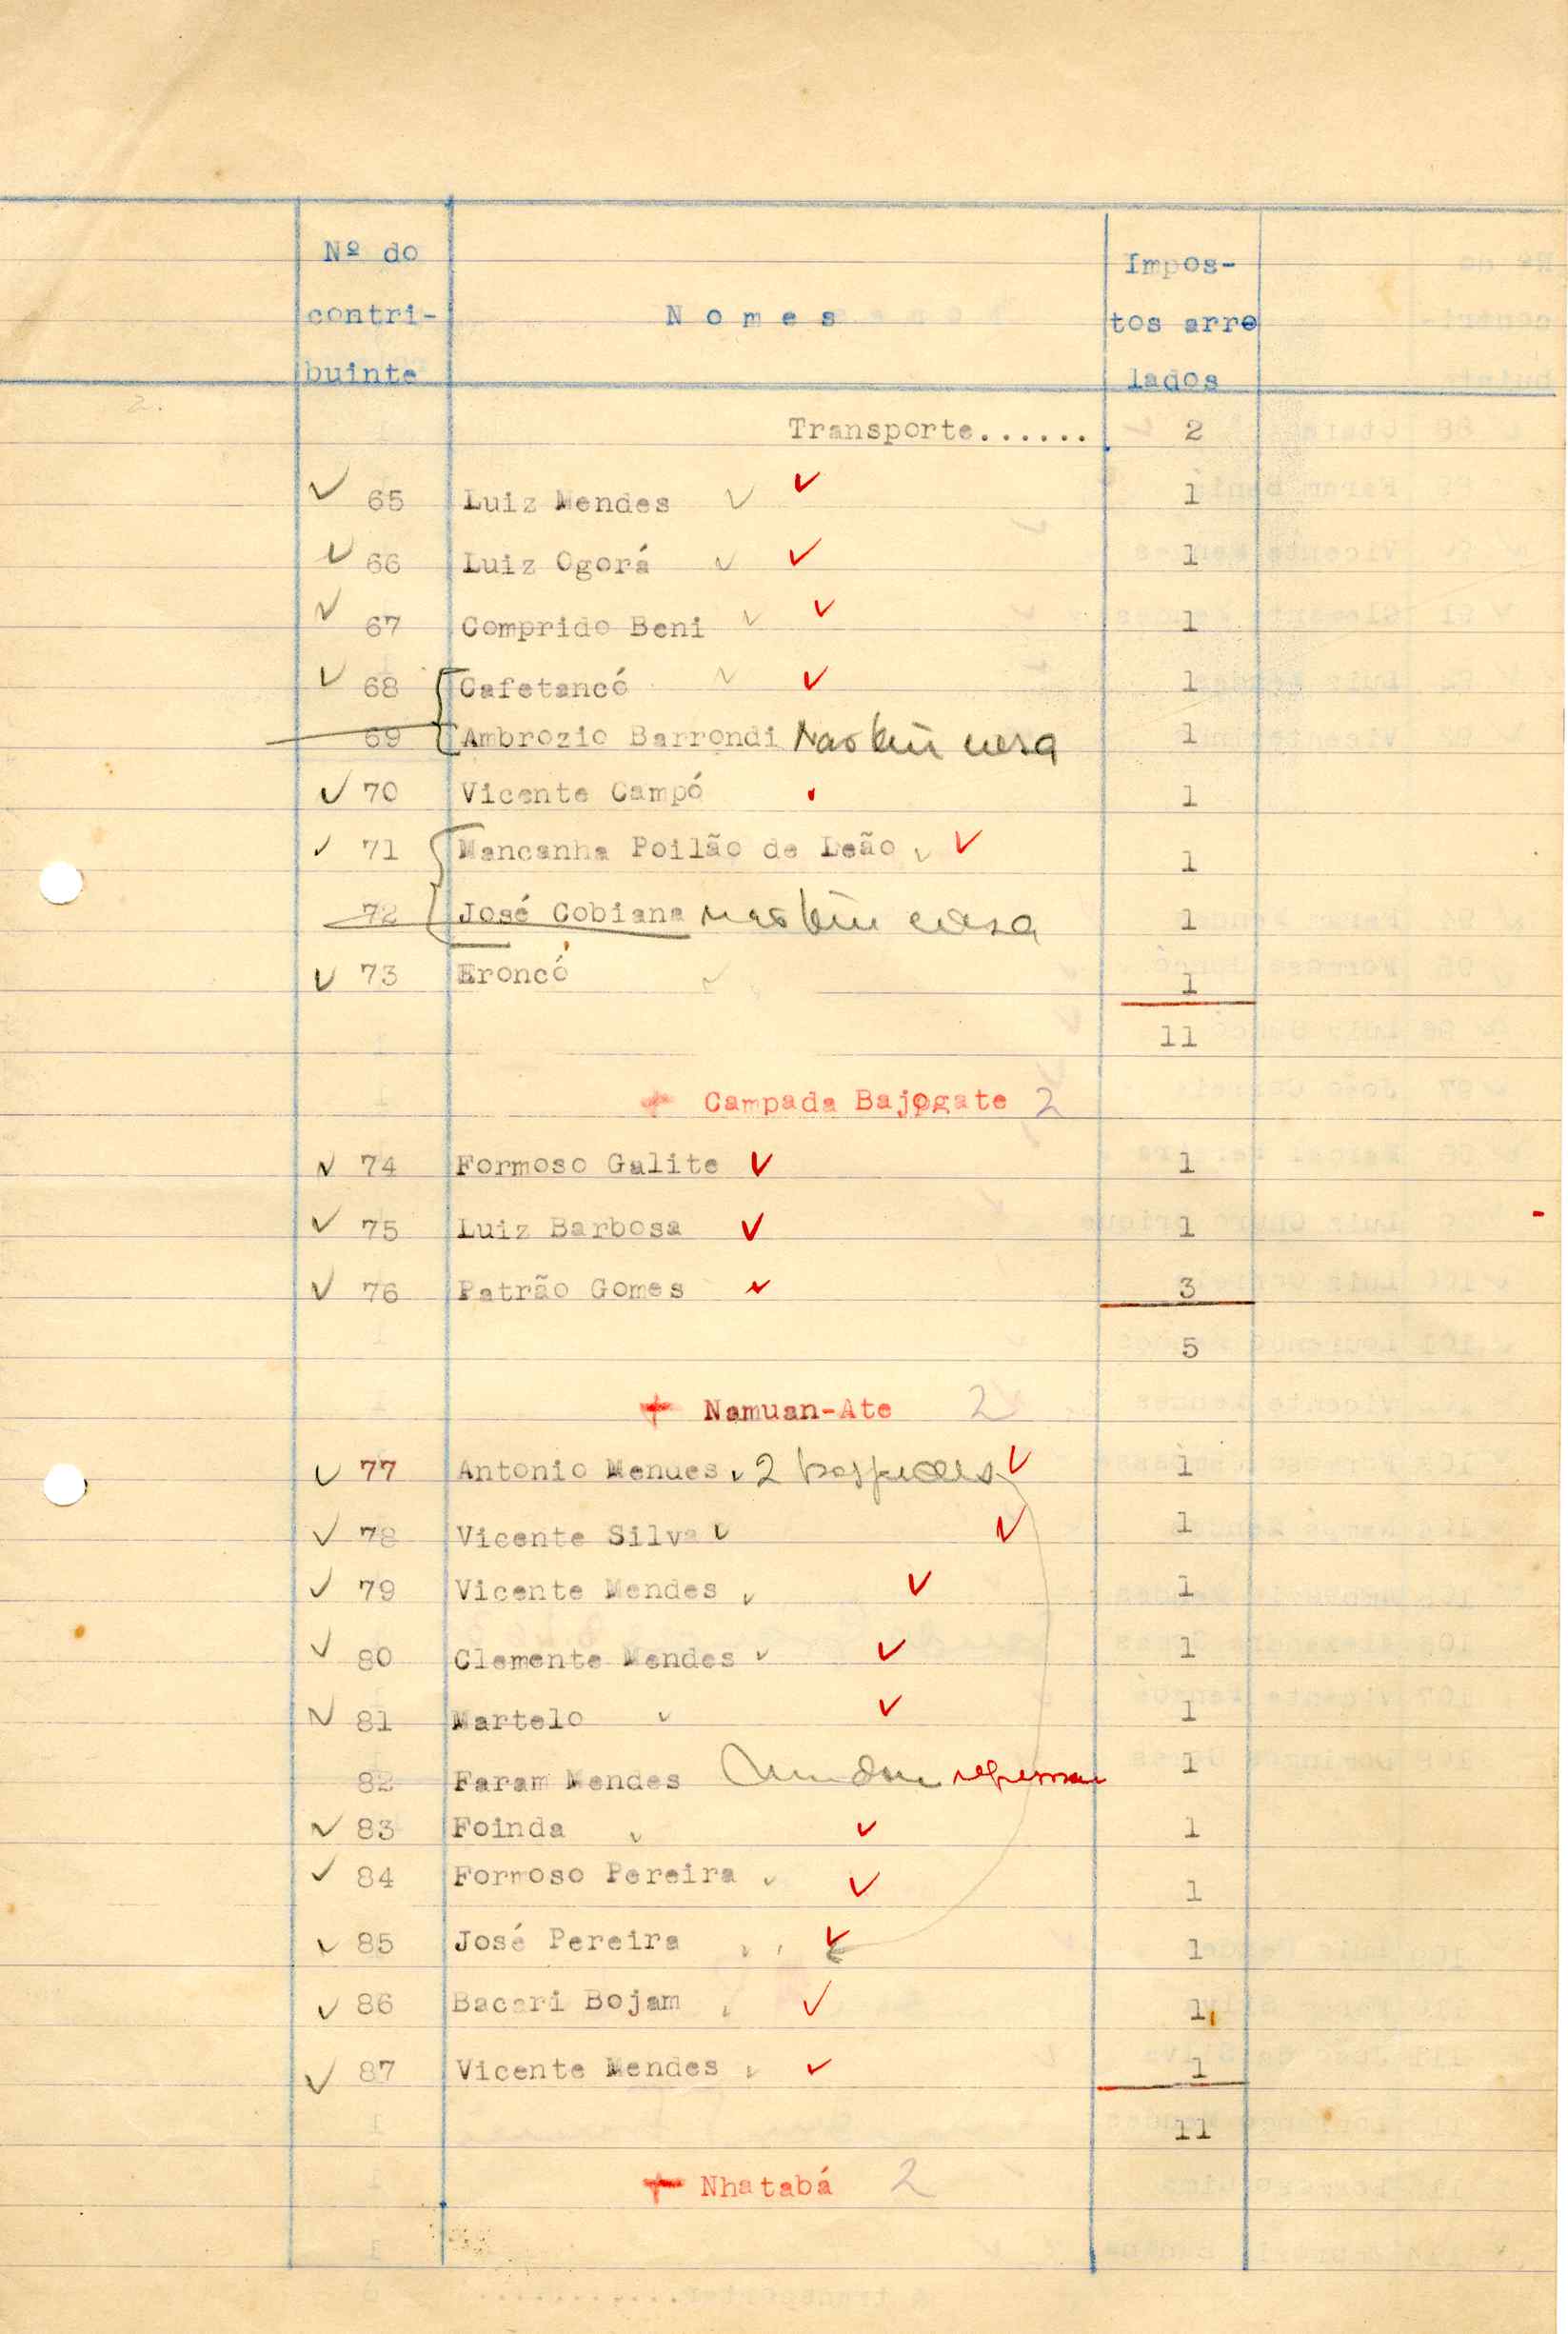 Nº do
contri-
buinte
Nomes
Impos-
tos arro
lados
Transporte...... 2
65 Luiz Mendes 1
66 Luiz Ogorá 1
67 Comprido Beni 1
68 Cafetancó 1
69 Ambrozio Barrondi Nao tem casa 1
70 Vicente Campó 1
71 Mancanha Poilão de Leão 1
72 José Cobiana nao tem casa 1
73 Eroncó 1
11
+ Campada Bajogate 2
74 Formoso Galite 1
75 Luiz Barbosa 1
76 Patrão Gomes 3
5
+ Namuan-Ate 2
77 Antonio Mendes 2 hospedes 1
78 Vicente Silva 1
79 Vicente Mendes 1
80 Clemente Mendes 1
81 Martelo 1
82 Faram Mendes 1
83 Foinda 1
84 Formoso Pereira 1
85 José Pereira 1
86 Bacari Bojam 1
87 Vicente Mendes 1
11
+ Nhatabá 2